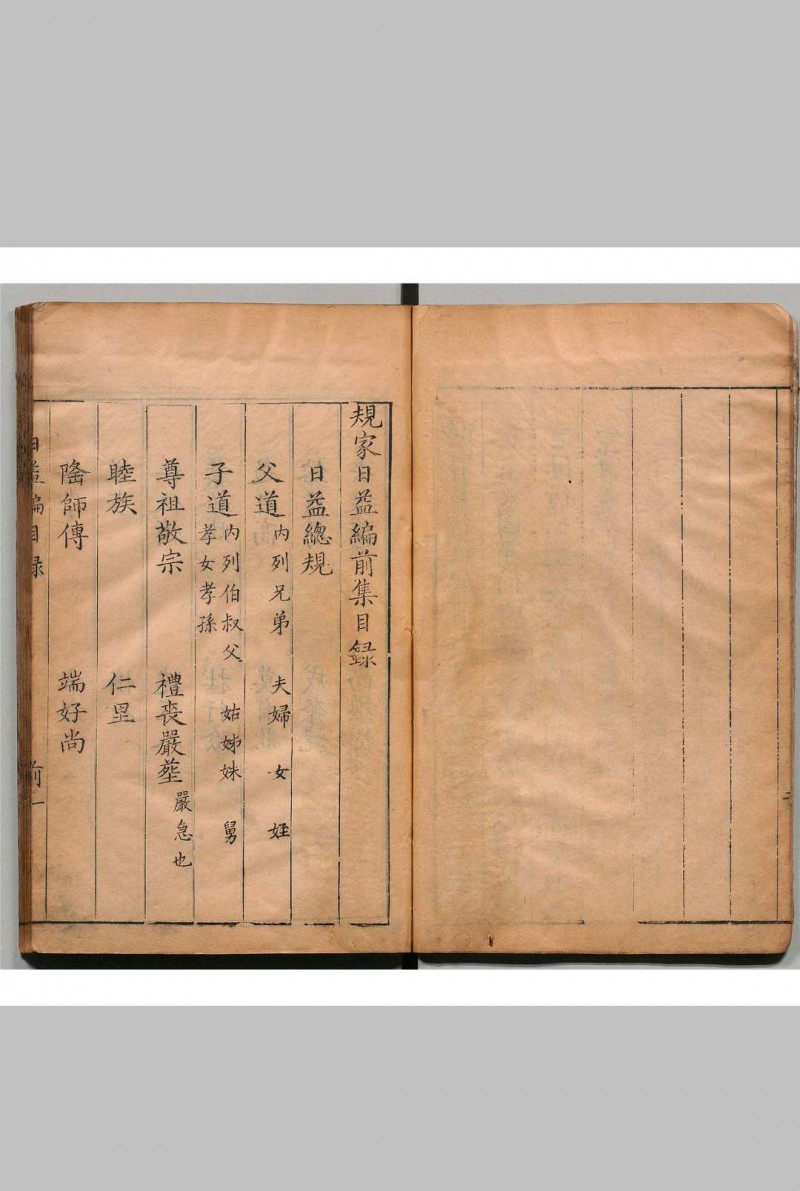 規家日益編前集目録
日益總規
父道 内列兄弟 夫婦 女 姪
子道 内列伯叔父 姑姊妹 舅
孝女孝孫
尊祖敬宗 禮喪嚴塟 嚴急也
睦族 仁里
隆師傳 端好尚
日益編目録 前一